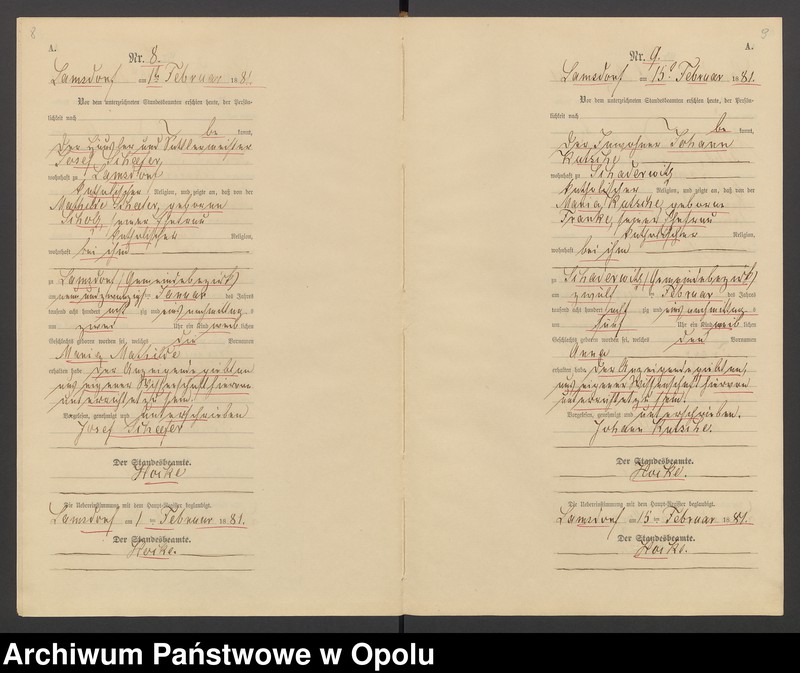 8
A.
Nr. 8.
Lamsdorf am 1ten Februar 1881.
Vor dem unterzeichneten Standesbeamten erschien heute, der Persön-
lichkeit nach
be kannt,
der Häusler und Sattlermeister
Josef Scheefer,
wohnhaft zu Lamsdorf
katholischer Religion, und zeigte an, daß von der
Mathilde Scheefer, geborene
Scholz, seiner Ehefrau
katholischer Religion,
wohnhaft bei ihm
zu Lamsdorf (Gemeindebezirk)
am neun und zwanzigsten Januar des Jahres
tausend acht hundert acht zig und eins nachmittag s
um zwei Uhr ein Kind weib lichen
Geschlechts geboren worden sei, welches den Vornamen
Maria Mathilde
erhalten habe. Der Anzeigende giebt an
aus eigener Wissenschaft hiervon
unterrichtet zu sein.
Vorgelesen, genehmigt und unterschrieben
Josef Scheefer
Der Standesbeamte.
Die Uebereinstimmung mit dem Haupt-Register beglaubigt.
Lamsdorf am 1 ten Februar 1881.
Der Standesbeamte.
9
A.
Nr. 9.
Lamsdorf am 15. Februar 1881.
Vor dem unterzeichneten Standesbeamten erschien heute, der Persön-
lichkeit nach
be kannt,
der Inwohner Johann
Kutsche
wohnhaft zu Schaderwitz
katholischer Religion, und zeigte an, daß von der
Maria Kutsche, geborne
Franke, seiner Ehefrau
katholischer Religion,
wohnhaft bei ihm
zu Schaderwitz (Gemeindebezirk)
am zwölf ten Februar des Jahres
tausend acht hundert acht zig und eins nachmittag s
um fünf Uhr ein Kind weib lichen
Geschlechts geboren worden sei, welches den Vornamen
Anna
erhalten habe. Der Anzeigende giebt an,
aus eigener Wissenschaft hiervon
unterrichtet zu sein.
Vorgelesen, genehmigt und unterschrieben.
Johann Kutsche.
Der Standesbeamte.
Die Uebereinstimmung mit dem Haupt-Register beglaubigt.
Lamsdorf am 15 ten Februar 1881.
Der Standesbeamte.
Archiwum Państwowe w Opolu